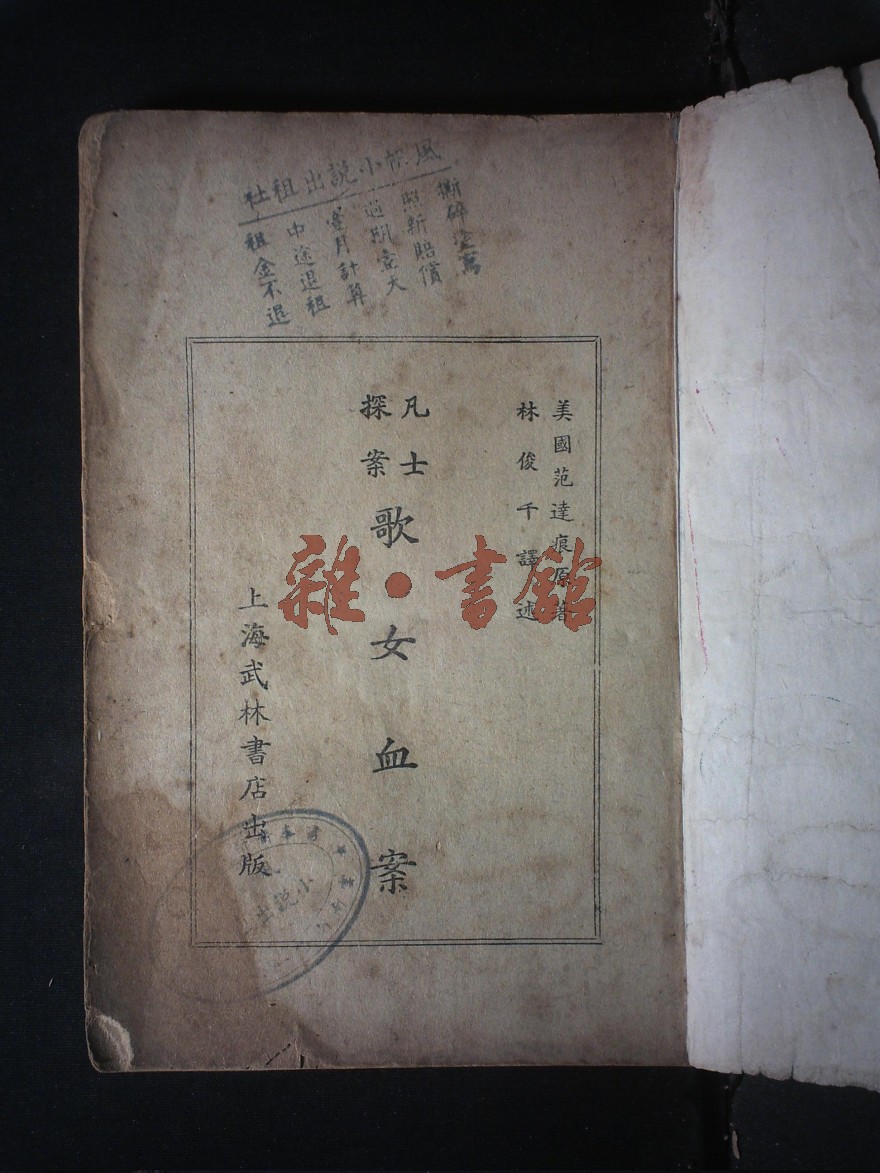 小說出租社
撕碎塗寫
照新賠償
過期壹天
壹月計算
中途退租
租金不退
美國范達痕原著
林俊千譯述
凡士探案
歌女血案
上海武林書店出版
雜・書館
小說出